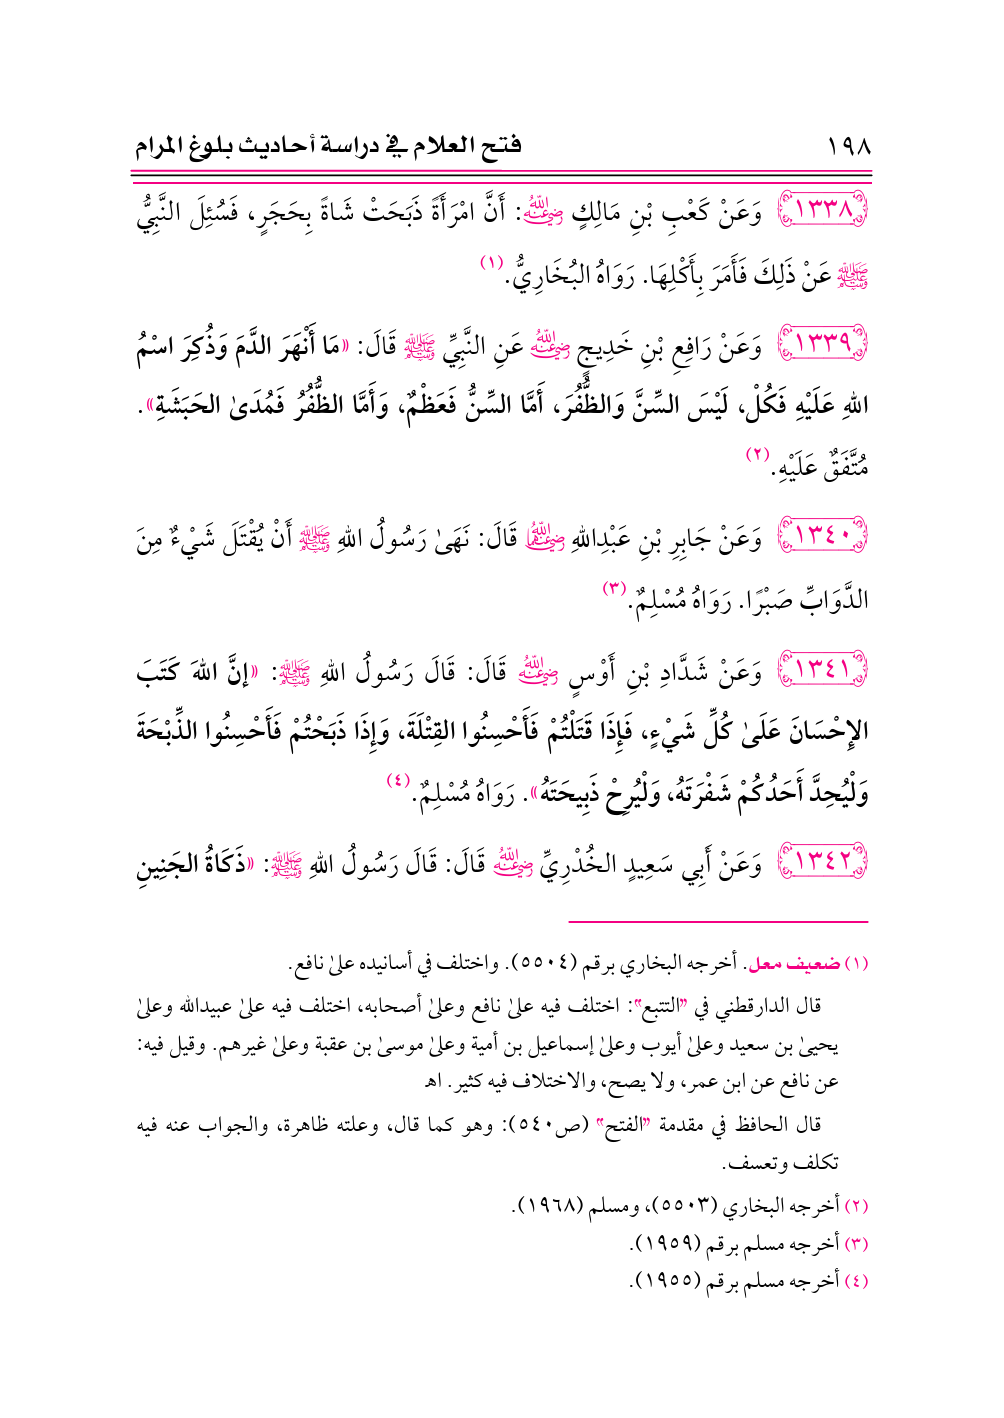 ١٩٨ فتح العلام في دراسة أحاديث بلوغ المرام
١٣٣٨ وَعَنْ كَعْبِ بْنِ مَالِكٍ رضي الله عنه: أَنَّ امْرَأَةً ذَبَحَتْ شَاةً بِحَجَرٍ، فَسُئِلَ النَّبِيُّ
ﷺ عَنْ ذَلِكَ فَأَمَرَ بِأَكْلِهَا. رَوَاهُ البُخَارِيُّ.(١)
١٣٣٩ وَعَنْ رَافِعِ بْنِ خَدِيجٍ رضي الله عنه عَنِ النَّبِيِّ ﷺ قَالَ: «مَا أَنْهَرَ الدَّمَ وَذُكِرَ اسْمُ
اللهِ عَلَيْهِ فَكُلْ، لَيْسَ السِّنَّ وَالظُّفُرَ، أَمَّا السِّنُّ فَعَظْمٌ، وَأَمَّا الظُّفُرُ فَمُدَىٰ الحَبَشَةِ».
مُتَّفَقٌ عَلَيْهِ.(٢)
١٣٤٠ وَعَنْ جَابِرِ بْنِ عَبْدِاللهِ رضي الله عنهما قَالَ: نَهَىٰ رَسُولُ اللهِ ﷺ أَنْ يُقْتَلَ شَيْءٌ مِنَ
الدَّوَابِّ صَبْرًا. رَوَاهُ مُسْلِمٌ.(٣)
١٣٤١ وَعَنْ شَدَّادِ بْنِ أَوْسٍ رضي الله عنه قَالَ: قَالَ رَسُولُ اللهِ ﷺ: «إِنَّ اللهَ كَتَبَ
الإِحْسَانَ عَلَىٰ كُلِّ شَيْءٍ، فَإِذَا قَتَلْتُمْ فَأَحْسِنُوا القِتْلَةَ، وَإِذَا ذَبَحْتُمْ فَأَحْسِنُوا الذِّبْحَةَ
وَلْيُحِدَّ أَحَدُكُمْ شَفْرَتَهُ، وَلْيُرِحْ ذَبِيحَتَهُ». رَوَاهُ مُسْلِمٌ.(٤)
١٣٤٢ وَعَنْ أَبِي سَعِيدٍ الخُدْرِيِّ رضي الله عنه قَالَ: قَالَ رَسُولُ اللهِ ﷺ: «ذَكَاةُ الجَنِينِ
(١) ضعيف معل. أخرجه البخاري برقم (٥٥٠٤). واختلف في أسانيده علىٰ نافع.
قال الدارقطني في "التتبع": اختلف فيه علىٰ نافع وعلىٰ أصحابه، اختلف فيه علىٰ عبيدالله وعلىٰ
يحيىٰ بن سعيد وعلىٰ أيوب وعلىٰ إسماعيل بن أمية وعلىٰ موسىٰ بن عقبة وعلىٰ غيرهم. وقيل فيه:
عن نافع عن ابن عمر، ولا يصح، والاختلاف فيه كثير. اهـ
قال الحافظ في مقدمة "الفتح" (ص٥٤٠): وهو كما قال، وعلته ظاهرة، والجواب عنه فيه
تكلف وتعسف.
(٢) أخرجه البخاري (٥٥٠٣)، ومسلم (١٩٦٨).
(٣) أخرجه مسلم برقم (١٩٥٩).
(٤) أخرجه مسلم برقم (١٩٥٥).